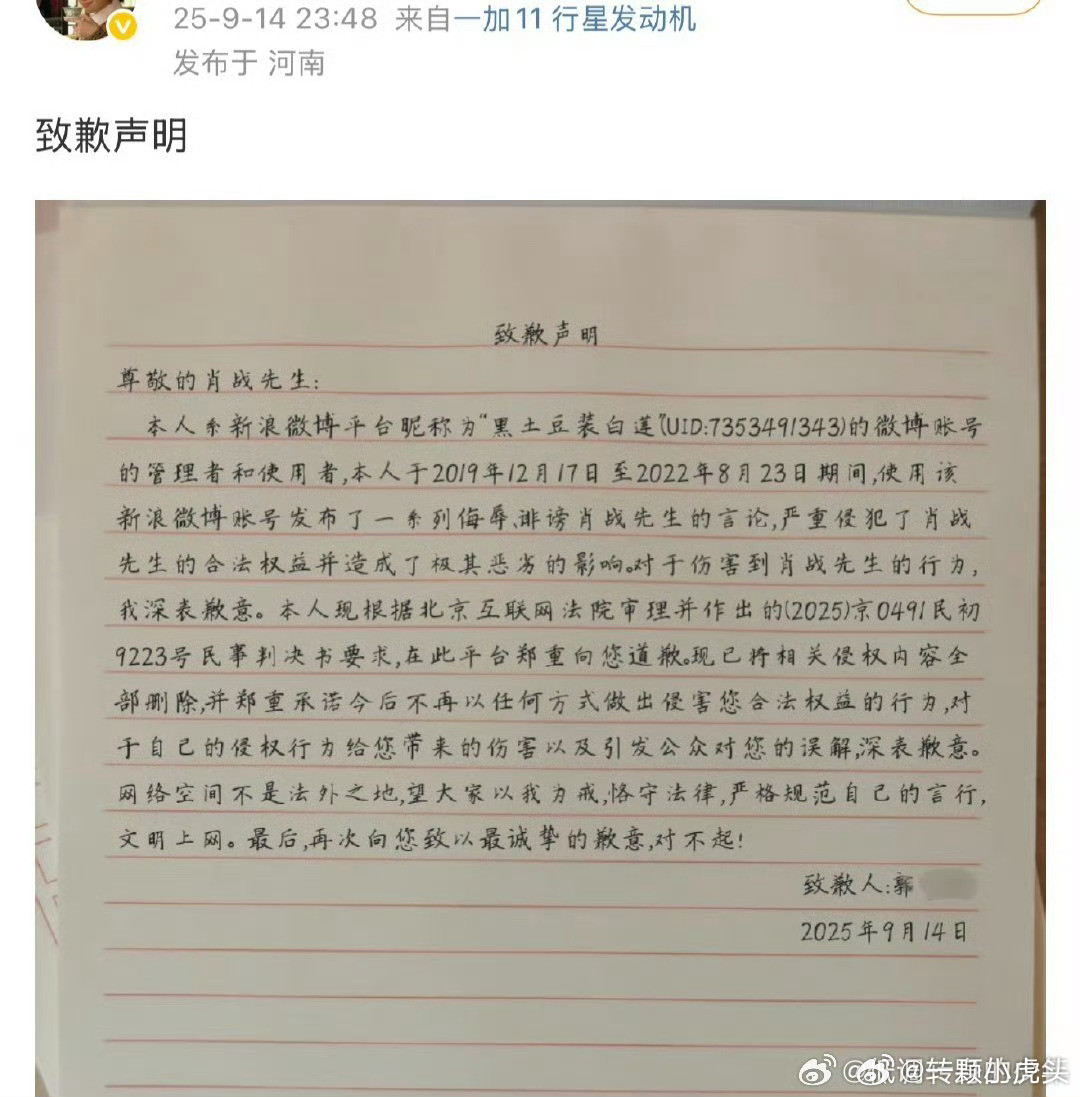 25-9-14 23:48 来自一加11 行星发动机
发布于 河南
致歉声明
致歉声明
尊敬的肖战先生:
本人系新浪微博平台昵称为“黑土豆装白莲”(UID:7353491343)的微博账号
的管理者和使用者,本人于2019年12月17日至2022年8月23日期间,使用该
新浪微博账号发布了一系列侮辱、诽谤肖战先生的言论,严重侵犯了肖战
先生的合法权益并造成了极其恶劣的影响。对于伤害到肖战先生的行为,
我深表歉意。本人现根据北京互联网法院审理并作出的(2025)京0491民初
9223号民事判决书要求,在此平台郑重向您道歉。现已将相关侵权内容全
部删除,并郑重承诺今后不再以任何方式做出侵害您合法权益的行为,对
于自己的侵权行为给您带来的伤害以及引发公众对您的误解,深表歉意。
网络空间不是法外之地,望大家以我为戒,恪守法律,严格规范自己的言行,
文明上网。最后,再次向您致以最诚挚的歉意,对不起!
致歉人:郭
2025年9月14日
转颗的虎头